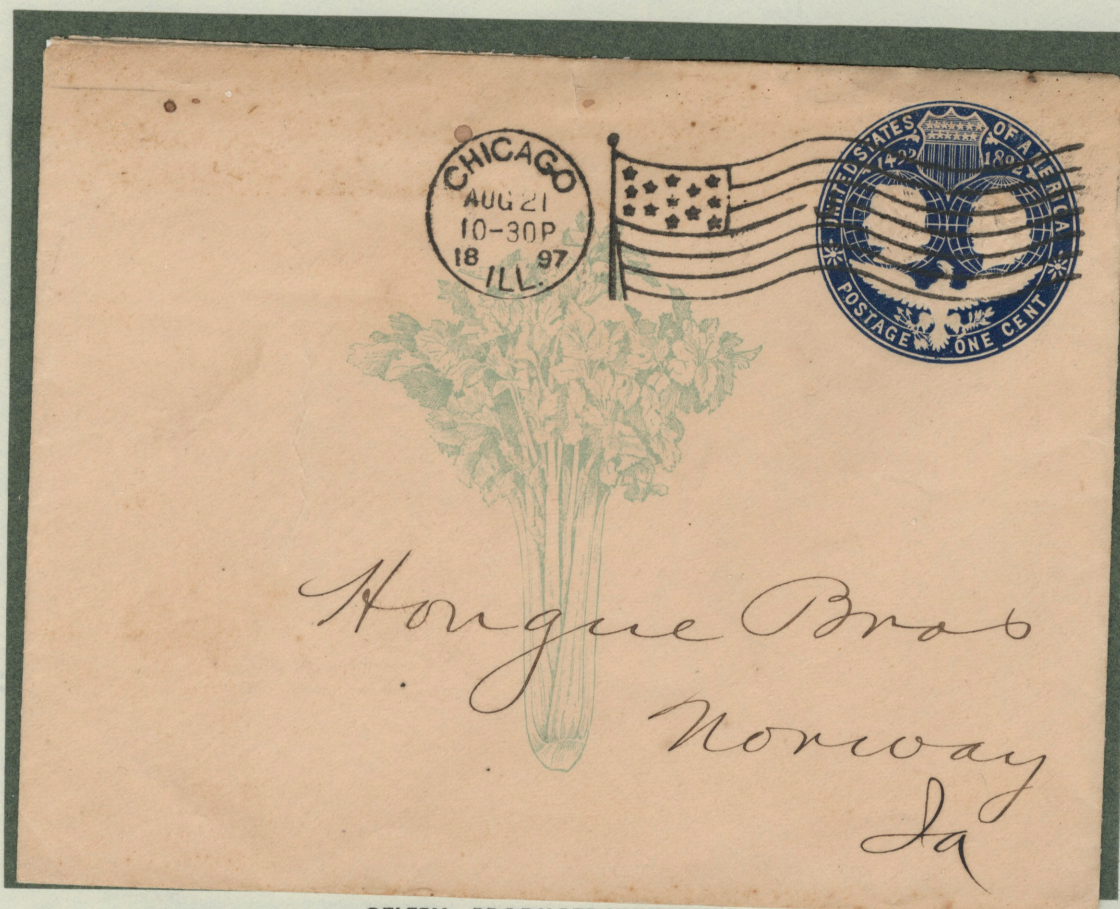 CHICAGO
AUG 21
10-30P
18 97
ILL.
UNITED STATES OF AMERICA
1492 1892
POSTAGE ONE CENT
Hongue Bros
Norway
Ia